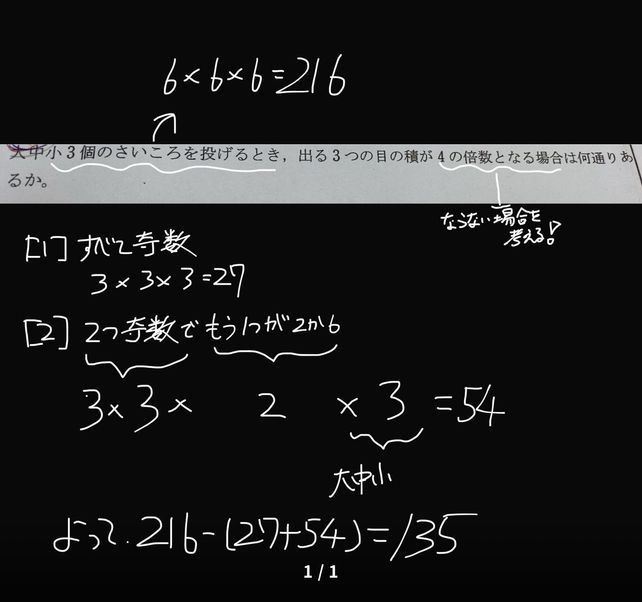 6×6×6=216
大中小3個のさいころを投げるとき，出る3つの目の積が4の倍数となる場合は何通りあ
るか。
ならない場合を
考える!
[1] すべて奇数
3×3×3=27
[2] 2つ奇数でもう1つが2か6
3×3× 2 ×3 =54
大中小
よって.216-(27+54)=135
1/1